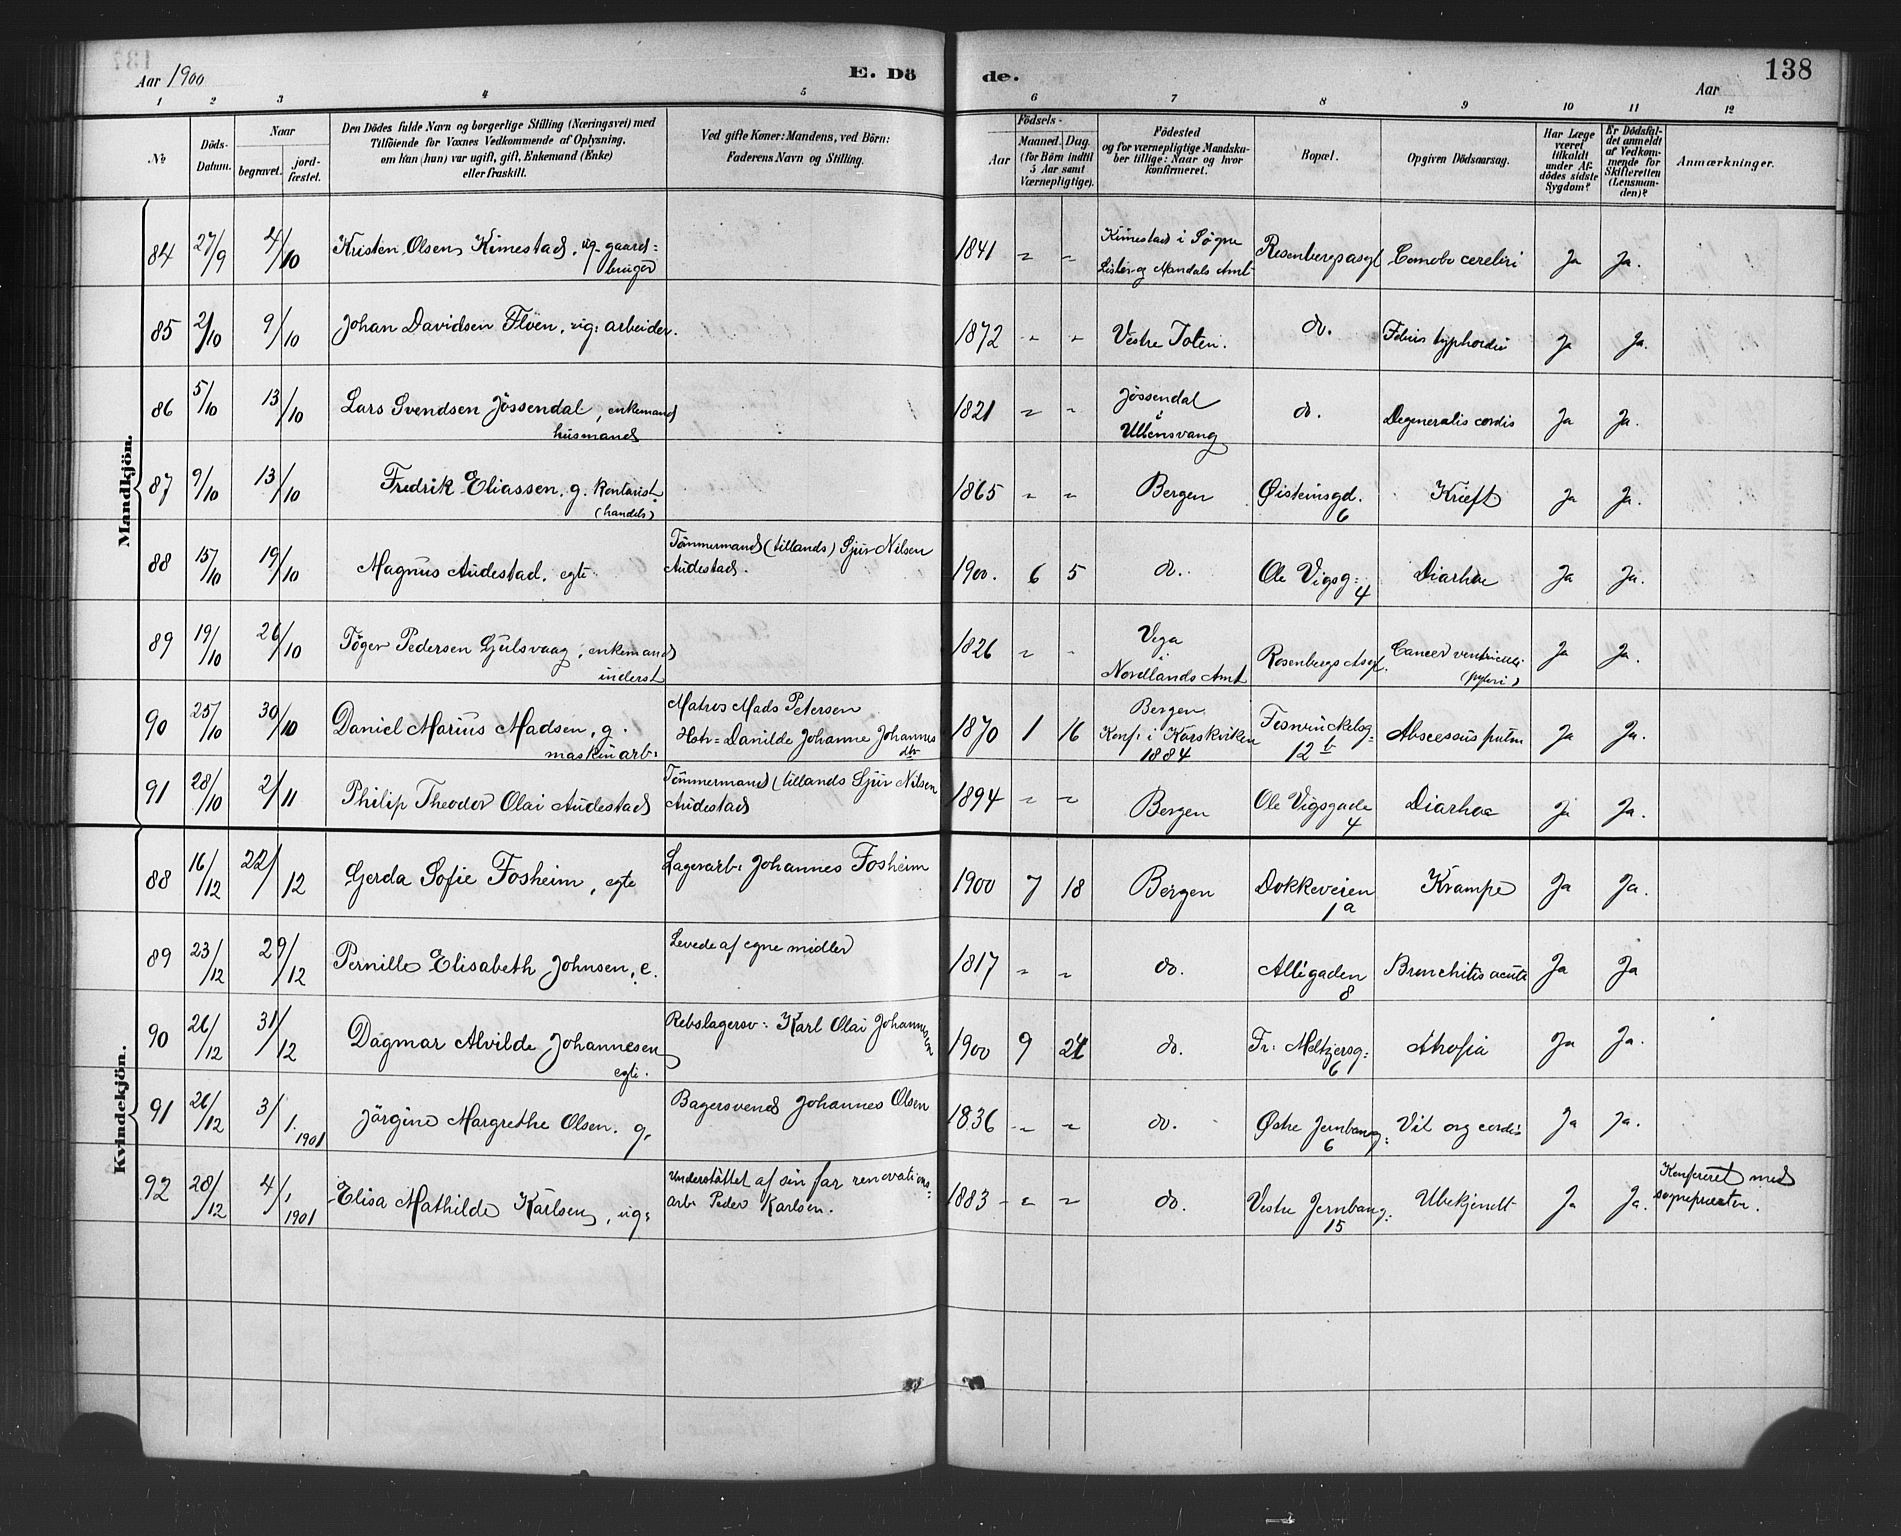 Aar 1900
E. Dö
de.
138
Aar
1 2 3 4 5 6 7 8 9 10 11 12
№
Döds-
Datum.
Naar
begravet.
jord-
fæstet.
Den Dödes fulde Navn og borgerlige Stilling (Næringsvei) med
Tilföiende for Voxnes Vedkommende af Oplysning,
om hun (han) var ugift, gift, Enkemand (Enke)
eller fraskilt.
Ved gifte Koner: Mandens, ved Börn:
Faderens Navn og Stilling.
Födsels-
Aar
Maaned. Dag.
(for Börn indtil
5 Aar samt
Værnepligtige).
Födested
og for værnepligtige Mandska-
ber tillige: Naar og hvor
konfirmeret.
Bopæl.
Opgiven Dödsaarsag.
Har Læge
været
tilkaldt
under Af-
dödes sidste
Sygdom?
Er Dödsfal-
det anmeldt
af Vedkom-
mende for
Skifteretten
(Lensman-
den)?
Anmærkninger.
Mandkjön.
84 27/9 4/10 Kristen Olsen Kimestad, ug. gaard=
bruger
1841 " " Kimestad i Søgne
Lister og Mandals Amt
Rosenbergsasyl
cerebri Ja Ja.
85 2/10 9/10 Johan Davidsen Flöen, ug: arbeider. 1872 " " Vestre Toten. do. Febris typhoidei Ja Ja.
86 5/10 13/10 Lars Svendsen Jössendal, enkemand
husmand
1821 " " Jössendal
i
Ullensvang
do. Degeneratis cordis Ja Ja.
87 9/10 13/10 Fredrik Eliassen, g. Kontorist.
(handels)
1865 " " Bergen Øisteinsgd.
6
Kræft Ja Ja.
88 15/10 19/10 Magnus Audestad, egte Tömmermand (tillands) Sjur Nilsen
Audestad.
1900. 6 5 do. Ole Vigsg:
4
Diarhoe Ja Ja.
89 19/10 26/10 Töger Pedersen Gulsvaag, enkemand
inderst
1826 " " Vega
i
Nordlands Amt
Rosenbergs Asyl. Cancer ventriculi
(pylori)
Ja Ja.
90 25/10 30/10 Daniel Marius Madsen, g.
maskinarb:
Matros Mads Petersen
Hstr= Danilde Johanne Johannes
dtr
1870 1 16 Bergen
Konf: i Korskirken
1884
12 b
Abscessus Ja Ja.
91 28/10 2/11 Philip Theodor Olai Audestad Tömmermand (tillands Sjur Nilsen
Audestad
1894 " " Bergen Ole Vigsgade
4
Diarhoe Ja Ja.
Kvindekjön.
88 16/12 22/12 Gerda Sofie Fosheim, egte Lagerarb: Johannes Fosheim 1900 7 18 Bergen Dokkeveien
1a
Krampe Ja Ja.
89 23/12 29/12 Pernille Elisabeth Johnsen, e. Levede af egne midler 1817 " " do. Allégaden
8
Bronchitis acuta Ja Ja
90 26/12 31/12 Dagmar Alvilde Johannesen
egte.
Rebslagersv: Karl Olai Johannesen
1900 9 24 do. Fr: Meltzersg:
6
Atrofia Ja Ja.
91 26/12 3/1. 1901 Jörgine Margrethe Olsen. g. Bagersvend Johannes Olsen 1836 " " do. Østre Jernbaneg:
6
Vit. org cordis Ja Ja.
92 28/12 4/1 1901 Elisa Mathilde Karlsen, ug: Understöttet af sin far renovations=
arb: Peder Karlsen.
1883 " " do. Vestre Jernbaneg:
15
Ubekjendt Ja Ja. Konfereret med
sognepresten.